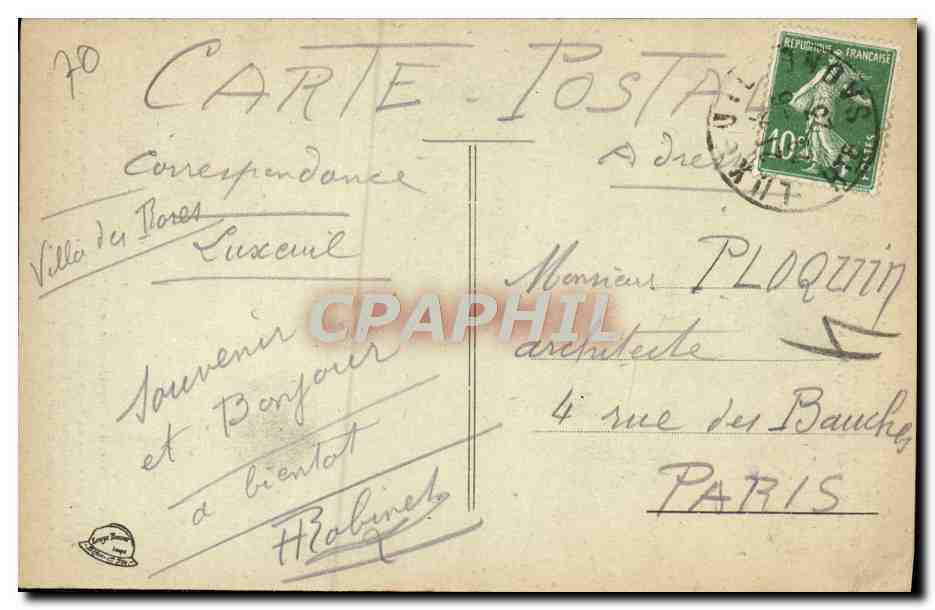 70
CARTE POSTALE
RÉPUBLIQUE FRANÇAISE
10c
Correspondance
Adresse
Villa des Roses
Luxeuil
Souvenir
et Bonjour
a bientot
HRobinet
Monsieur PLOQUIN
architecte
4 rue des Bauches
PARIS
CPAPHIL